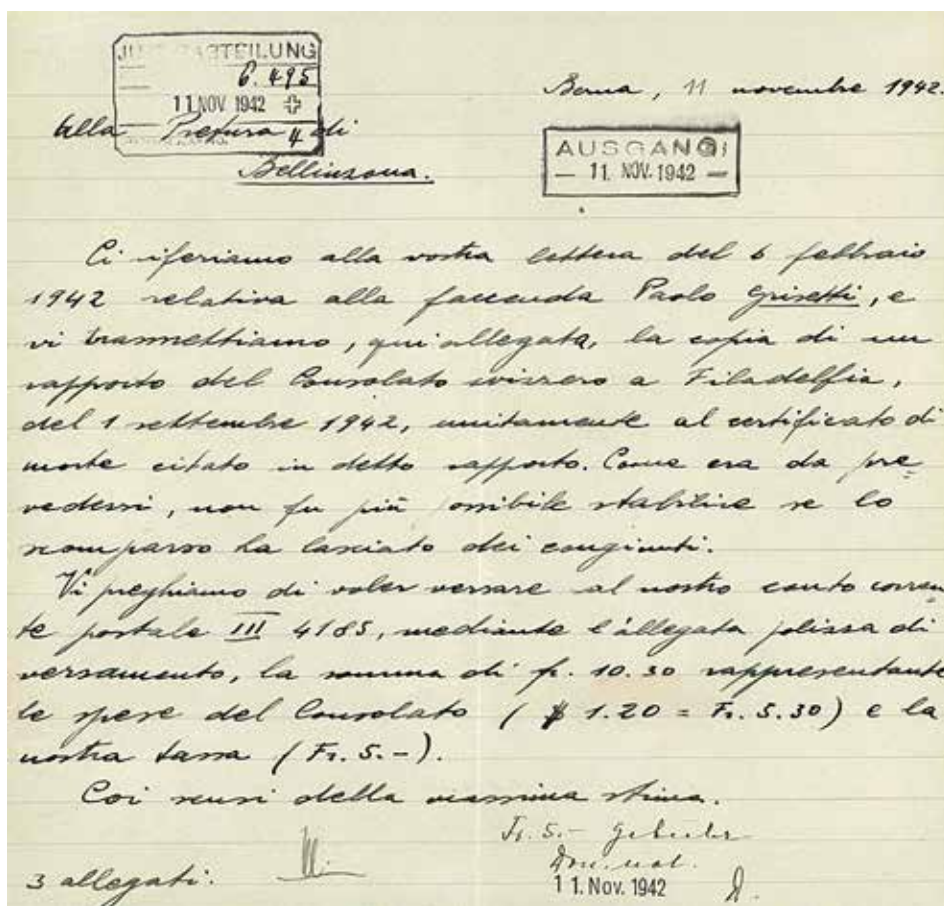 ABTEILUNG
6.495
11 NOV 1942
4
Berna, 11 novembre 1942.
Alla Pretura di
Bellinzona.
AUSGANG
— 11. NOV. 1942 —
Ci riferiamo alla vostra lettera del 6 febbraio
1942 relativa alla faccenda Paolo Grisetti, e
vi trasmettiamo, qui allegata, la copia di un
rapporto del Consolato svizzero a Filadelfia,
del 1 settembre 1942, unitamente al certificato di
morte citato in detto rapporto. Come era da pre=
vedersi, non fu più possibile stabilire se lo
scomparso ha lasciato dei congiunti.
Vi preghiamo di voler versare al nostro conto corren
te postale III 4185, mediante l'allegata polizza di
versamento, la somma di fr. 10.30 rappresentante
le spese del Consolato ($ 1.20 = Fr. 5.30) e la
nostra tassa (Fr. 5.-).
Coi sensi della massima stima.
Fr. 5.-
11. Nov. 1942
3 allegati.